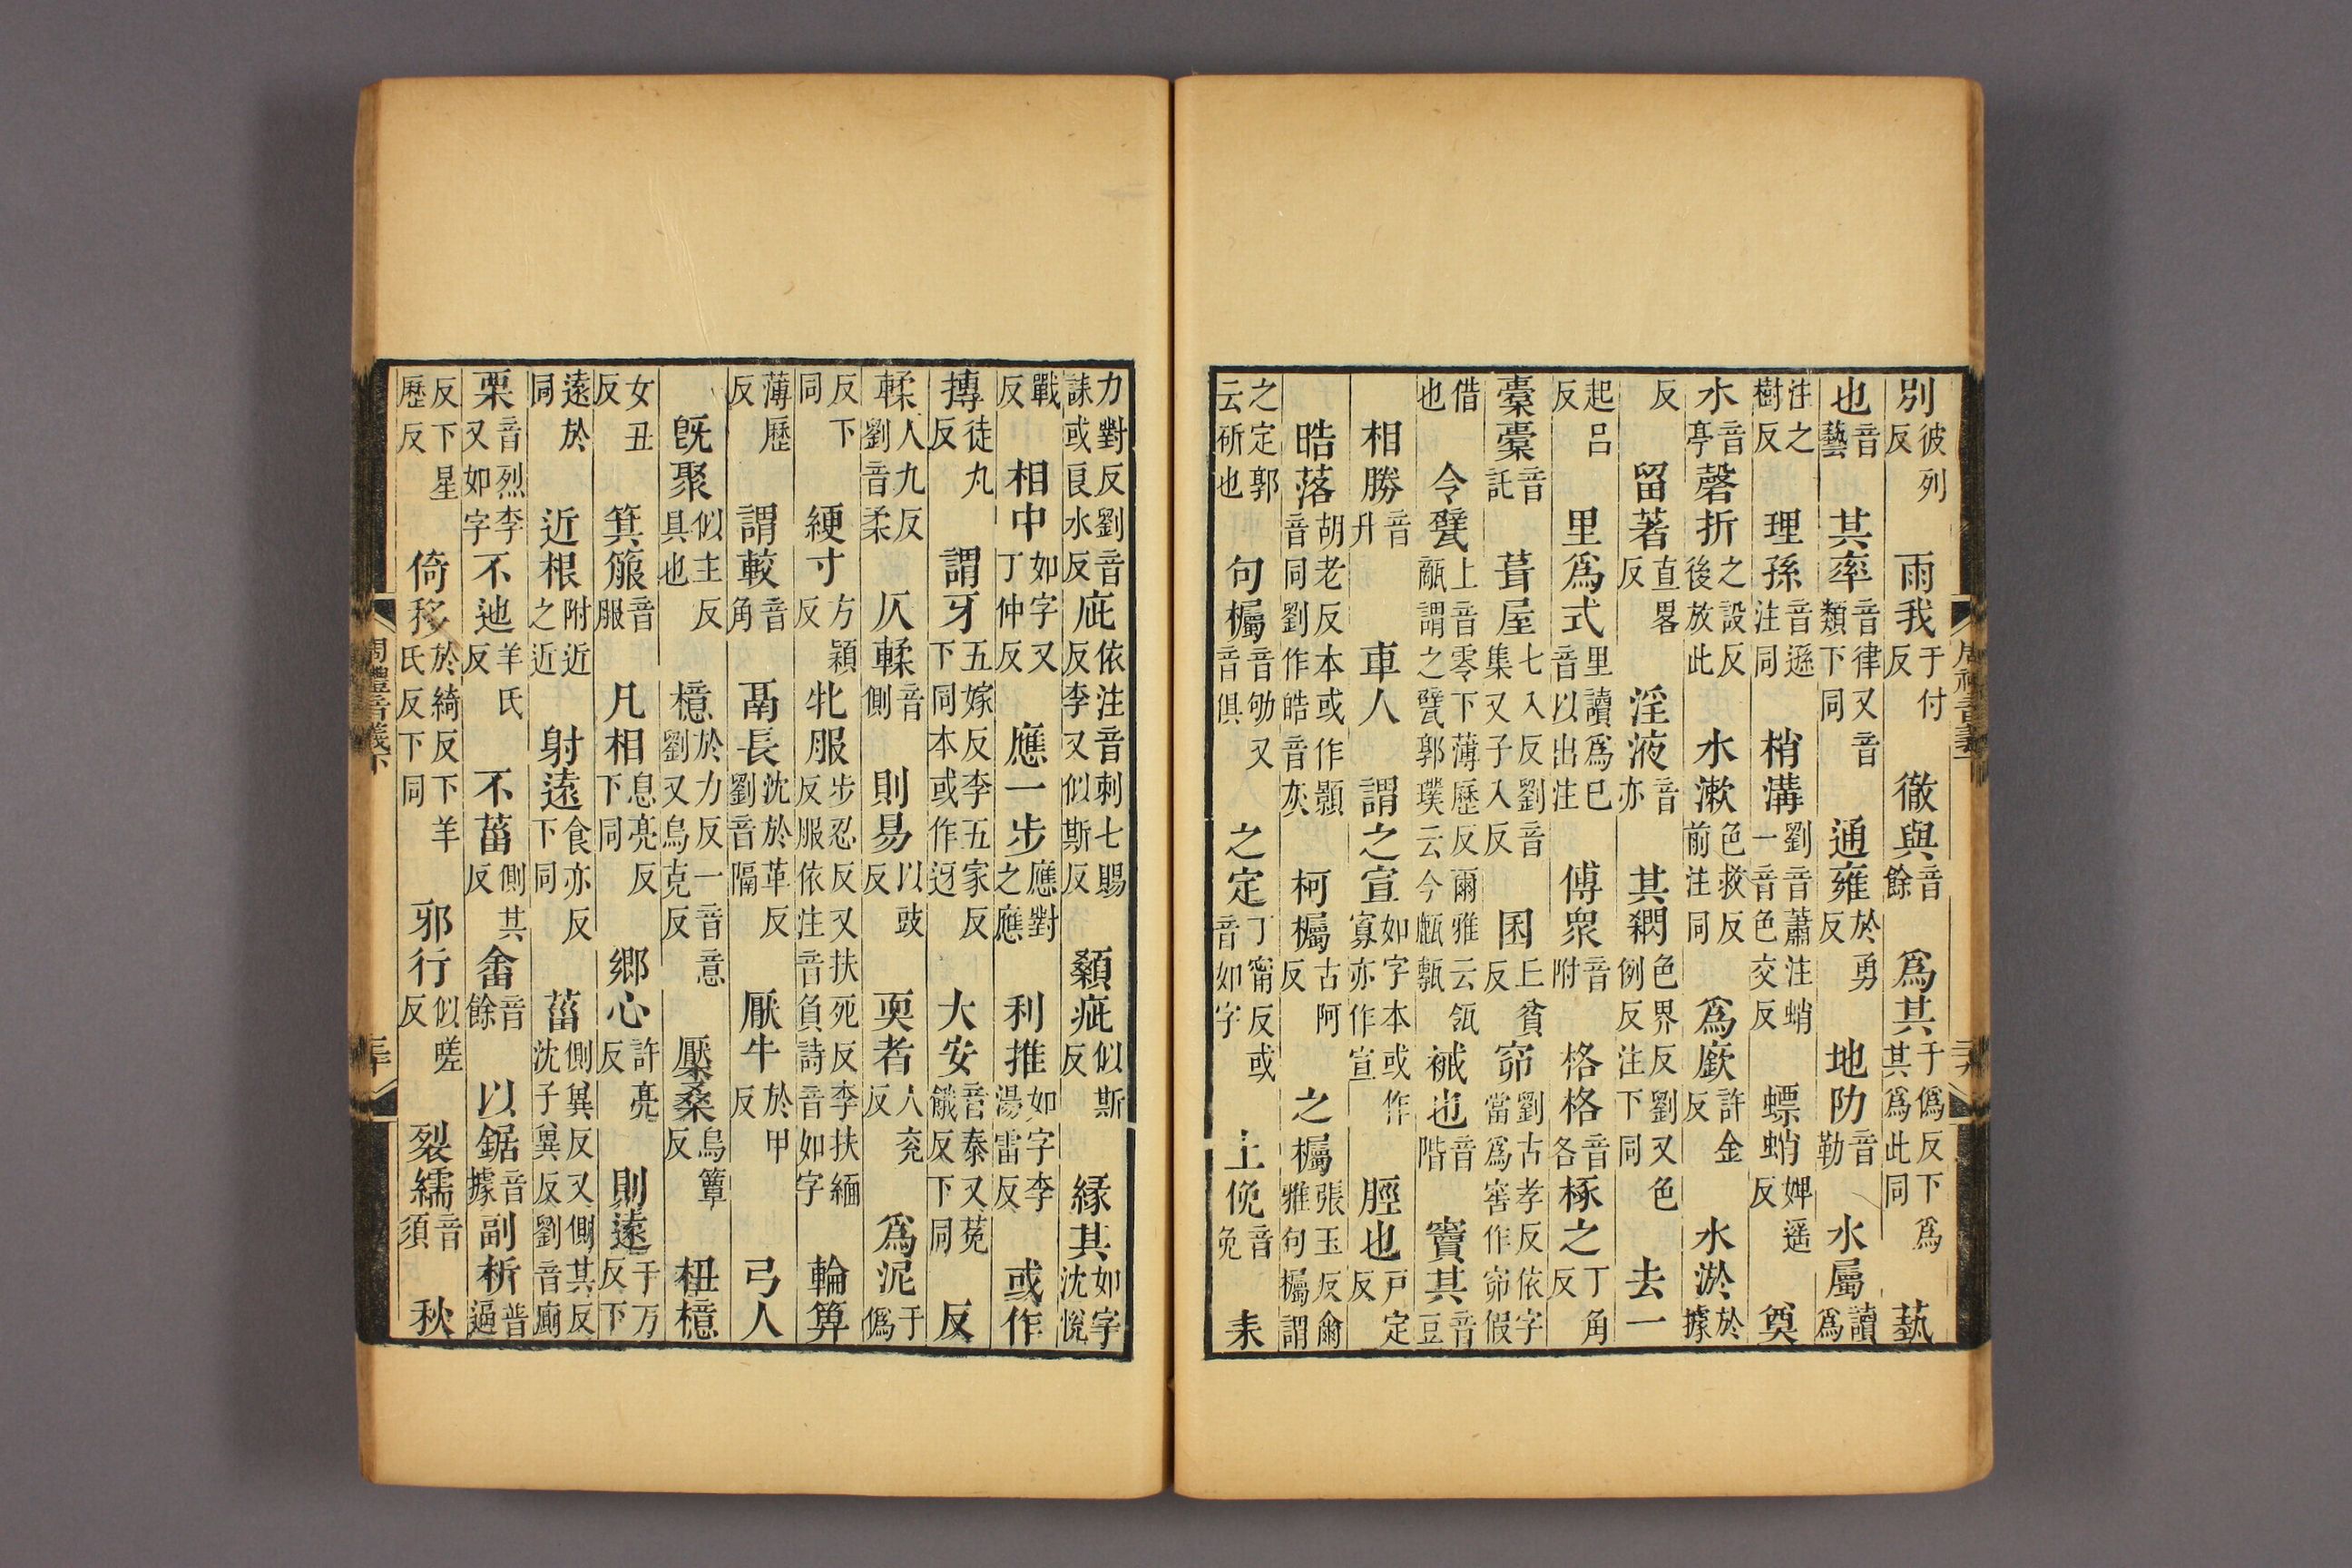 別彼列反 雨我于付反 徹與音餘 爲其于僞反下爲其爲此同 藝
也音藝 其率音律又音類下同 通雍於勇反 地防音勒 水屬讀爲
注之樹反 理孫音遜注同 梢溝劉音蕭注蛸一音色交反 螵蛸婢遥反 奠
水音亭 磬折之設反後放此 水漱色救反前注同 爲廞許金反 水淤於據
反 留著直畧反 淫液音亦 其閷色界反劉又色例反注下同 去一
起呂反 里爲式里讀爲巳音以出注 傅衆音附 格格音各 椓之丁角反
橐橐音託 葺屋七入反劉音集又子入反 囷丘貧反 窌劉古孝反依字當爲窖作窌假
借也 令甓上音零下薄歷反爾雅云瓴甋謂之甓郭璞云今𤮘甎 裓也音階 竇其音豆
相勝音升 車人 謂之宣如字本或作寡亦作宣 脛也戸定反
晧落胡老反本或作顥音同劉作皓音灰 柯欘古阿反 之欘張玉反爾雅句欘謂
之定郭云斫也 句欘音劬又音俱 之定丁甯反或音如字 上俛音免 耒
力對反劉音誄或良水反 庛依注音刺七賜反李又似斯反 顙疵似斯反 緣其如字沈悅
戰反 相中如字又丁仲反 應一步應對之應 利推如字李湯雷反 或作
摶徒丸反 謂牙五嫁反李五家反下同本或作迓 大安音泰又餓反下同 反
輮人九反劉音柔 仄輮音側 則易以豉反 耎者人兖反 爲泥于僞
反下同 綆寸方穎反 牝服步忍反又扶死反李扶緬反服依注音負詩音如字 輪箅
薄歷反 謂較音角 鬲長沈於革反劉音隔 厭牛於甲反 弓人
旣聚似主反具也 檍於力反一音意劉又烏克反 檿桑烏簟反 杻檍
女丑反 箕箙音服 凡相息亮反下同 鄉心許亮反 則遠于万反下
遠於同 近根附近之近 射遠食亦反下同 菑側異反又側其反沈子異反劉音廁
栗音烈李又如字 不迆羊氏反 不菑側其反 畬音餘 以鋸音據 副析普逼
反下星歷反 倚移於綺反下羊氏反下同 邪行似嗟反 裂繻音須 秋
周禮音義下